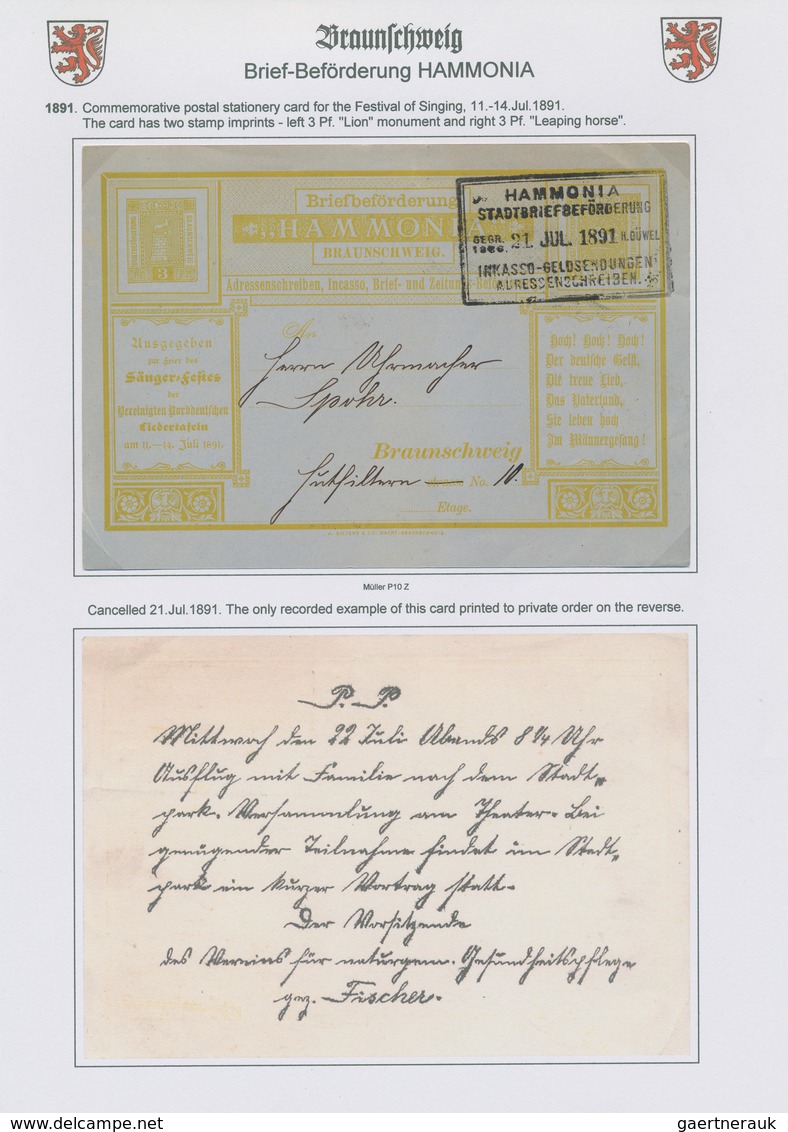 Braunschweig
Brief-Beförderung HAMMONIA
1891. Commemorative postal stationery card for the Festival of Singing, 11.-14.Jul.1891.
The card has two stamp imprints - left 3 Pf. "Lion" monument and right 3 Pf. "Leaping horse".
Briefbeförderung
HAMMONIA
BRAUNSCHWEIG.
Adressenschreiben, Incasso, Brief- und
3
HAMMONIA
STADTBRIEFBEFÖRDERUNG
GEGR. 21. JUL. 1891 H.DÜWEL
1886.
INKASSO-GELDSENDUNGEN
ADRESSENSCHREIBEN.
Ausgegeben
zur Feier des
Sänger-Festes
der
Vereinigten Norddeutschen
Liedertafeln
am 11.—14. Juli 1891.
An
Herrn Uhrmacher
Spohr.
Braunschweig
Hutfiltern No. 10.
Etage.
Hoch! Hoch! Hoch!
Der deutsche Geist,
Die treue Lieb,
Das Vaterland,
Sie leben hoch
Im Männergesang!
Müller P10 Z
Cancelled 21.Jul.1891. The only recorded example of this card printed to private order on the reverse.
P. P.
Mittwoch den 22 Juli Abends 8 1/4 Uhr
Ausflug mit Familie nach dem Stadt-
park. Versammlung am Theater. Bei
genügender Teilnahme findet im Stadt-
park ein kurzer Vortrag statt.
Der Vorsitzende
des Vereins für naturgem. Gesundheitspflege
gez. Fischer.
www.delcampe.net
gaertnerauk